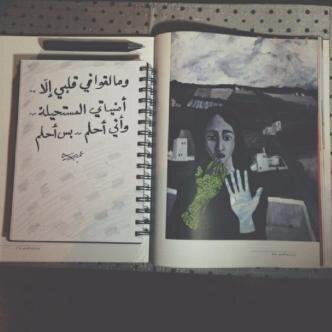 وما لقوا في قلبي إلّا ..
أمنياتي المستحيلة ..
وأني أحلم .. بس أحلم